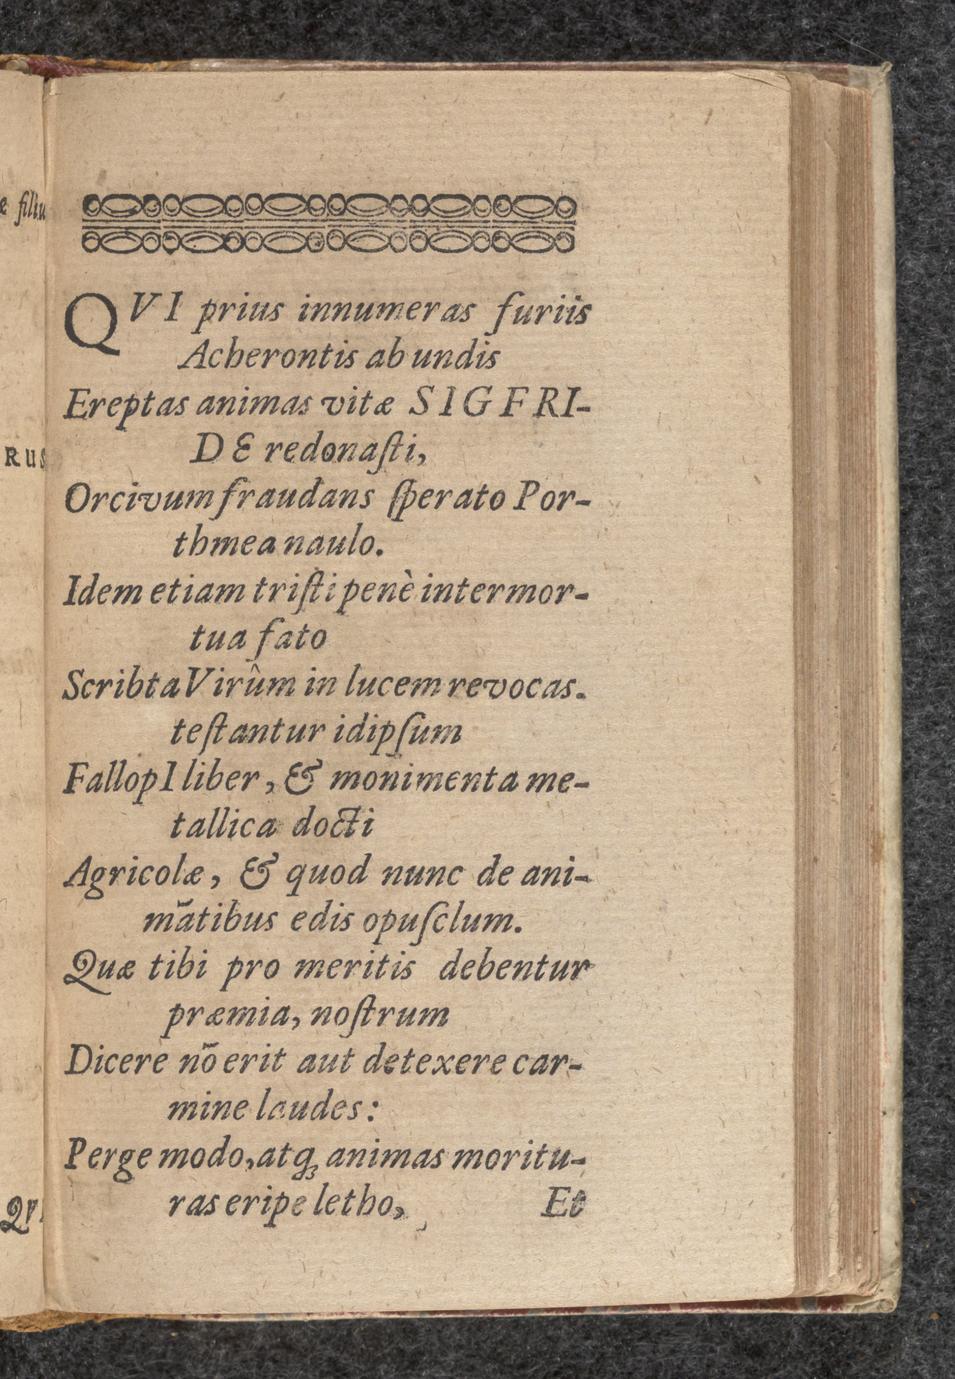 QVI prius innumeras furiis
Acherontis ab undis
Ereptas animas vitæ SIGFRI-
DE redonaſti,
Orcivum fraudans ſperato Por-
thmea naulo.
Idem etiam triſti penè intermor-
tua fato
Scribta Virûm in lucem revocas.
teſtantur idipſum
FallopI liber, & monimenta me-
tallica docti
Agricolæ, & quod nunc de ani-
mātibus edis opuſclum.
Quæ tibi pro meritis debentur
præmia, noſtrum
Dicere nō erit aut detexere car-
mine laudes:
Perge modo, atqꝫ animas moritu-
ras eripe letho,
Et
e filiu
RUS